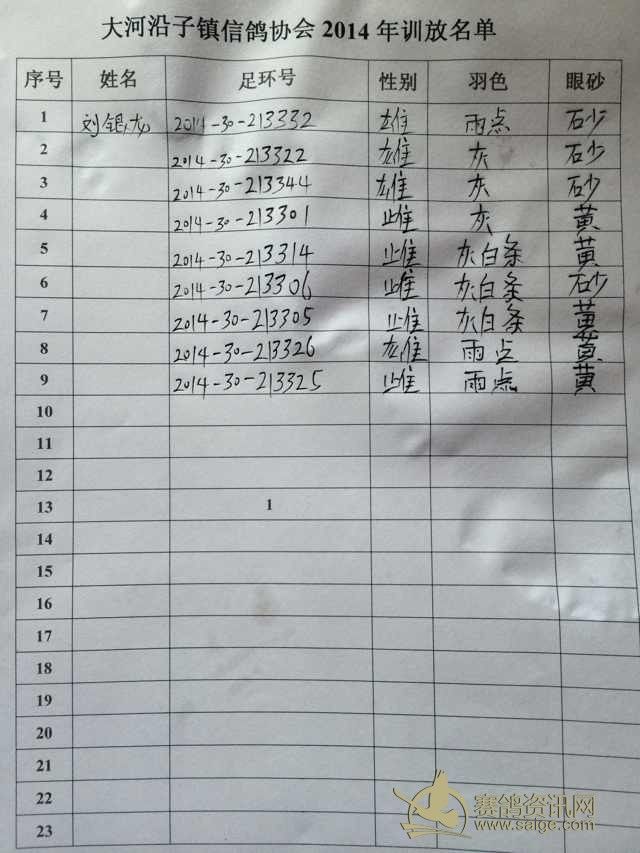 大河沿子镇信鸽协会 2014 年训放名单
序号 姓名 足环号 性别 羽色 眼砂
1 刘银龙 2014-30-213332 雄 雨点 砂
2 2014-30-213322 雄 灰 砂
3 2014-30-213344 雄 灰 砂
4 2014-30-213301 雌 灰 黄
5 2014-30-213314 雌 灰白条 黄
6 2014-30-213306 雌 灰白条 砂
7 2014-30-213305 雌 灰白条 黄
8 2014-30-213326 雄 雨点 黄
9 2014-30-213325 雌 雨点 黄
10
11
12
13 1
14
15
16
17
18
19
20
21
22
23
赛鸽资讯网
www.saige.com